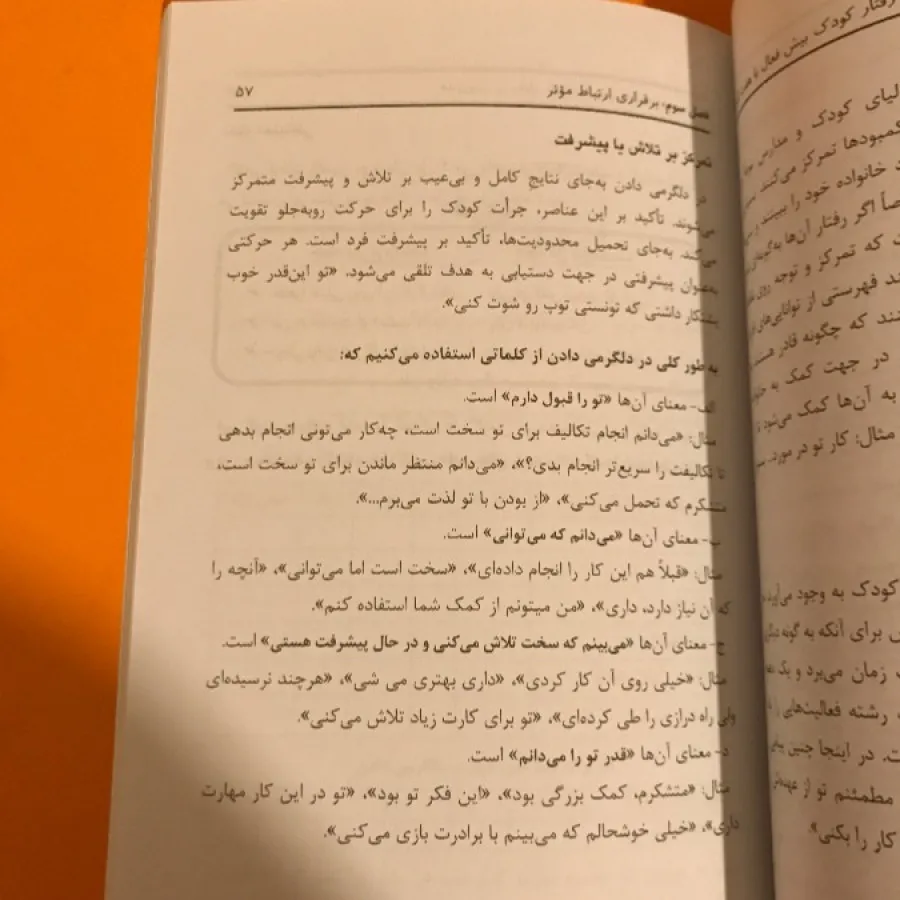 فصل سوم: برقراری ارتباط مؤثر ۵۷
تمرکز بر تلاش یا پیشرفت
در دلگرمی دادن به‌جای نتایج کامل و بی‌عیب بر تلاش و پیشرفت متمرکز
می‌شوند. تأکید بر این عناصر، جرأت کودک را برای حرکت روبه‌جلو تقویت
می‌کند. به‌جای تحمیل محدودیت‌ها، تأکید بر پیشرفت فرد است. هر حرکتی
به‌عنوان پیشرفتی در جهت دستیابی به هدف تلقی می‌شود. «تو این‌قدر خوب
پشتکار داشتی که تونستی توپ رو شوت کنی».
به طور کلی در دلگرمی دادن از کلماتی استفاده می‌کنیم که:
الف- معنای آن‌ها «تو را قبول دارم» است.
مثال: «می‌دانم انجام تکالیف برای تو سخت است، چه‌کار می‌تونی انجام بدهی
تا تکالیفت را سریع‌تر انجام بدی؟»، «می‌دانم منتظر ماندن برای تو سخت است،
متشکرم که تحمل می‌کنی»، «از بودن با تو لذت می‌برم...».
ب- معنای آن‌ها «می‌دانم که می‌توانی» است.
مثال: «قبلاً هم این کار را انجام داده‌ای»، «سخت است اما می‌توانی»، «آنچه را
که آن نیاز دارد، داری»، «من میتونم از کمک شما استفاده کنم».
ج- معنای آن‌ها «می‌بینم که سخت تلاش می‌کنی و در حال پیشرفت هستی» است.
مثال: «خیلی روی آن کار کردی»، «داری بهتری می شی»، «هرچند نرسیده‌ای
ولی راه درازی را طی کرده‌ای»، «تو برای کارت زیاد تلاش می‌کنی».
د- معنای آن‌ها «قدر تو را می‌دانم» است.
مثال: «متشکرم، کمک بزرگی بود»، «این فکر تو بود»، «تو در این کار مهارت
داری»، «خیلی خوشحالم که می‌بینم با برادرت بازی می‌کنی».
رفتار کودک بیش فعال
لیای کودک و مدارس
کمبودها تمرکز می‌کنند
د خانواده خود را ببینند و
صاً اگر رفتار آن‌ها به‌گونه‌ای
ت که تمرکز و توجه روی
ند فهرستی از توانایی‌های
نند که چگونه قادر هستند
در جهت کمک به
به آن‌ها کمک می‌شود
مثال: کار تو در مورد
کودک به وجود می‌آید
ش برای آنکه به گونه
ت زمان می‌برد و یک
رشته فعالیت‌هایی را
ت. در اینجا چنین
مطمئنم تو از عهده‌اش
کار را بکنی».